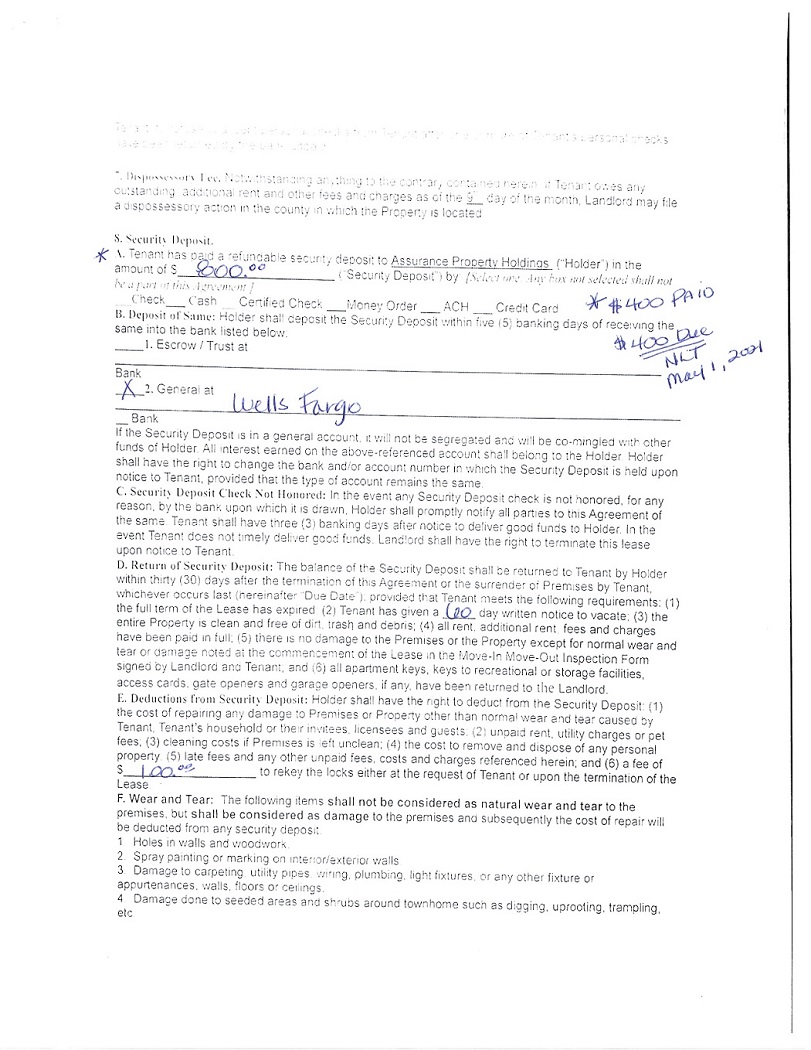 Tenant's personal checks
7. Dispossessory Fee. Notwithstanding anything to the contrary contained herein, if Tenant owes any
outstanding additional rent and other fees and charges as of the day of the month, Landlord may file
a dispossessory action in the county in which the Property is located
8. Security Deposit.
* A. Tenant has paid a refundable security deposit to Assurance Property Holdings ("Holder") in the
amount of $ 800.00 ("Security Deposit") by [Select one. Any box not selected shall not
be a part of this Agreement]
Check___ Cash Certified Check ___Money Order ___ ACH ___ Credit Card
* $400 PAID
B. Deposit of Same: Holder shall deposit the Security Deposit within five (5) banking days of receiving the
same into the bank listed below.
$400 Due
NLT
May 1, 2021
____1. Escrow / Trust at
Bank
X 2. General at Wells Fargo
__ Bank
If the Security Deposit is in a general account, it will not be segregated and will be co-mingled with other
funds of Holder. All interest earned on the above-referenced account shall belong to the Holder. Holder
shall have the right to change the bank and/or account number in which the Security Deposit is held upon
notice to Tenant, provided that the type of account remains the same.
C. Security Deposit Check Not Honored: In the event any Security Deposit check is not honored, for any
reason, by the bank upon which it is drawn, Holder shall promptly notify all parties to this Agreement of
the same. Tenant shall have three (3) banking days after notice to deliver good funds to Holder. In the
event Tenant does not timely deliver good funds, Landlord shall have the right to terminate this lease
upon notice to Tenant.
D. Return of Security Deposit: The balance of the Security Deposit shall be returned to Tenant by Holder
within thirty (30) days after the termination of this Agreement or the surrender of Premises by Tenant,
whichever occurs last (hereinafter "Due Date"); provided that Tenant meets the following requirements: (1)
the full term of the Lease has expired; (2) Tenant has given a 60 day written notice to vacate; (3) the
entire Property is clean and free of dirt, trash and debris; (4) all rent, additional rent, fees and charges
have been paid in full; (5) there is no damage to the Premises or the Property except for normal wear and
tear or damage noted at the commencement of the Lease in the Move-In Move-Out Inspection Form
signed by Landlord and Tenant; and (6) all apartment keys, keys to recreational or storage facilities,
access cards, gate openers and garage openers, if any, have been returned to the Landlord.
E. Deductions from Security Deposit: Holder shall have the right to deduct from the Security Deposit: (1)
the cost of repairing any damage to Premises or Property other than normal wear and tear caused by
Tenant, Tenant's household or their invitees, licensees and guests; (2) unpaid rent, utility charges or pet
fees; (3) cleaning costs if Premises is left unclean; (4) the cost to remove and dispose of any personal
property; (5) late fees and any other unpaid fees, costs and charges referenced herein; and (6) a fee of
$ 100.00 to rekey the locks either at the request of Tenant or upon the termination of the
Lease
F. Wear and Tear: The following items shall not be considered as natural wear and tear to the
premises, but shall be considered as damage to the premises and subsequently the cost of repair will
be deducted from any security deposit.
1 Holes in walls and woodwork.
2. Spray painting or marking on interior/exterior walls
3. Damage to carpeting, utility pipes, wiring, plumbing, light fixtures, or any other fixture or
appurtenances, walls, floors or ceilings.
4 Damage done to seeded areas and shrubs around townhome such as digging, uprooting, trampling,
etc